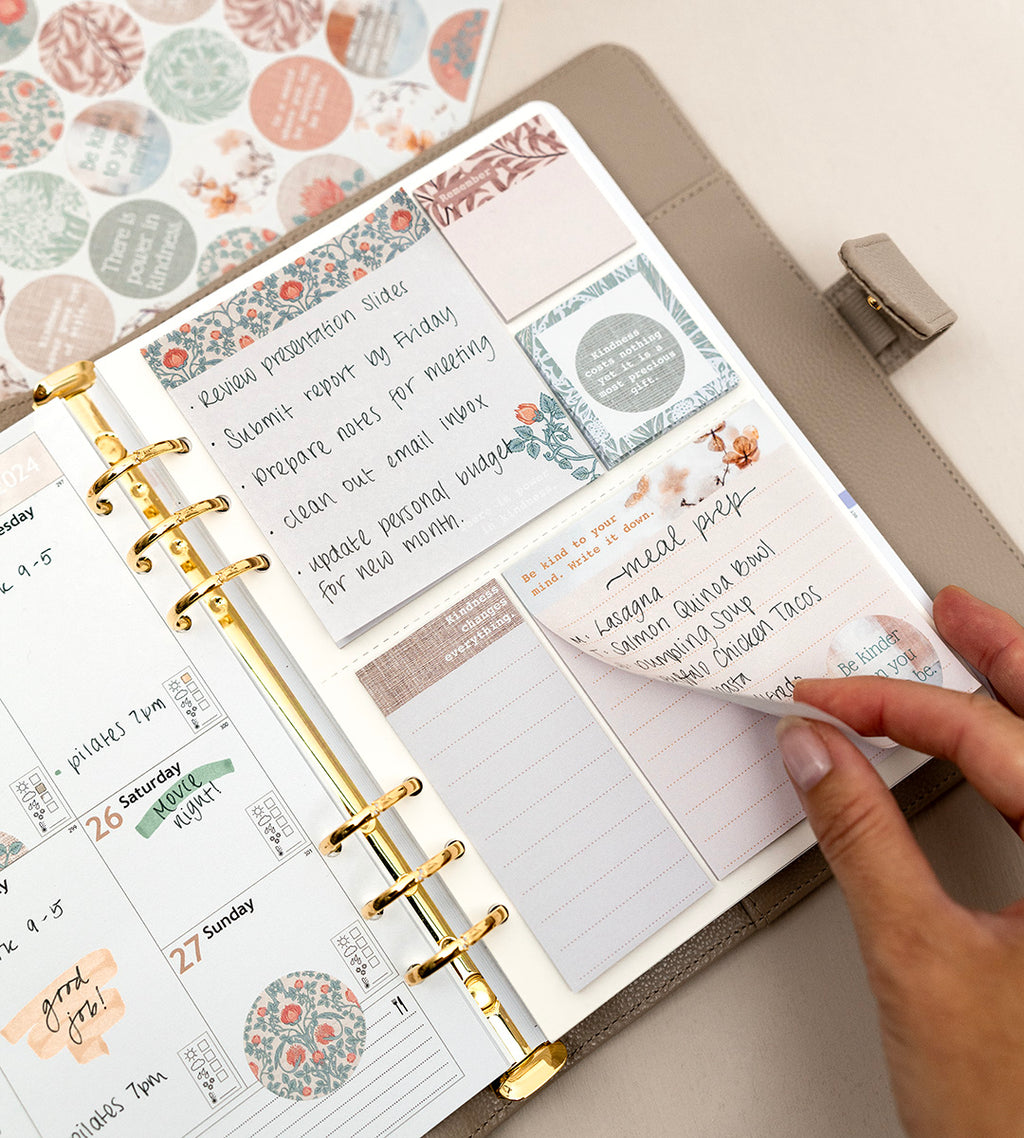 Be kind
to your
mind.
There is
power in
kindness.
Remember
• Review presentation slides
• Submit report by Friday
• prepare notes for meeting
• clean out email inbox
• update personal budget
for new month.
Kindness
costs nothing
yet it is a
most precious
gift.
Be kind to your
mind. Write it down.
meal prep
Lasagna
Salmon Quinoa Bowl
Dumpling Soup
Chicken Tacos
Be kinder
you
be.
Kindness
changes
everything.
2024
297
9-5
• pilates 7pm
300
26 Saturday
Movie
night!
299
301
9-5
good
job!
27 Sunday
pilates 7pm